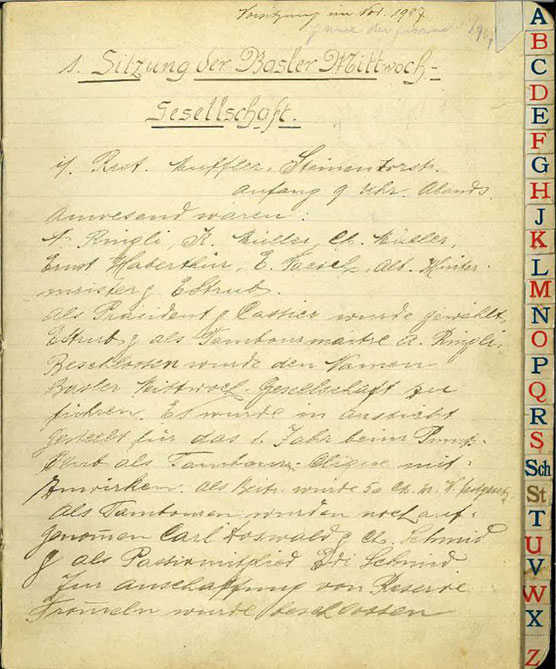 Vorsitzung im Nov. 1907
1907
1. Sitzung der Basler Mittwoch-
Gesellschaft.
i/ Rest. Müffler, Steinentorstr.
Anfang 9 Uhr. Abends.
Anwesend waren:
A. Ringli, K. Müller, Ch. Müller,
Ernst Haberthür, E. Alb. Hinter-
meister & E Strub
Als Präsident & Cassier wurde gewählt,
E Strub, & als Tambourmaitre A. Ringli.
Beschlossen wurde den Namen
Basler Mittwoch Gesellschaft zu
führen. Es wurde in Aussicht
gestellt für das 1. Jahr beim
Club als Tambour-Clique mit-
zuwirken. Als Beitr. wurde 50 Ch.
Als Tambouren wurden noch auf-
genom̄en Carl Roswald & Ch. Schmid
& als Passivmitglied Edi Schmid.
Zur Anschaffung von Reserve
Trom̄eln wurde beschlossen
A
B
C
D
E
F
G
H
J
K
L
M
N
O
P
Q
R
S
Sch
St
T
U
V
W
X
Z